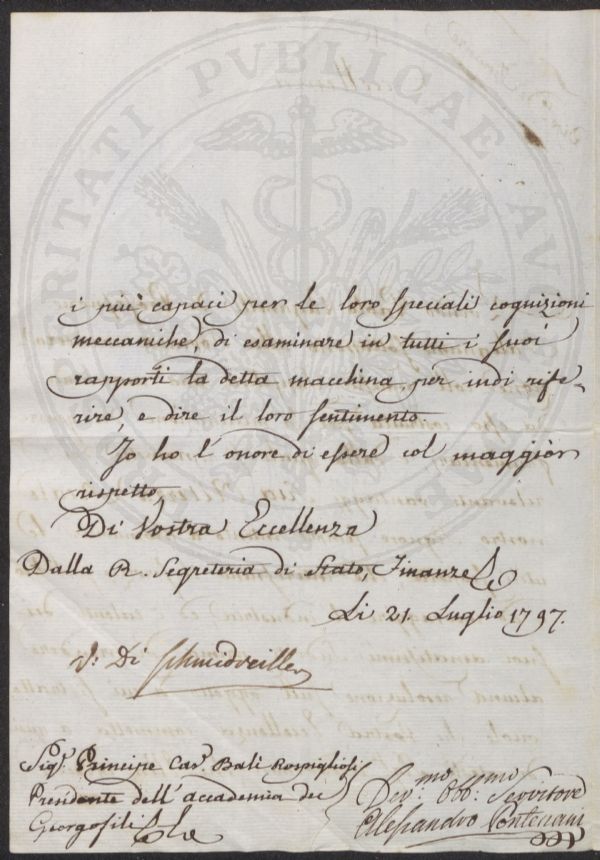 i più capaci per le loro speciali cognizioni
meccaniche, di esaminare in tutti i suoi
rapporti la detta macchina per indi rife-
rire, e dire il loro sentimento.
Io ho l'onore di essere col maggior
rispetto
Di Vostra Eccellenza
Dalla R. Segreteria di Stato, Finanze
Li 21. Luglio 1797.
V: Di Schmidveiller
Sigr. Principe Cavr. Balì Rospigliosi
dell'accademia dei
Georgofili
Devmo. Obbmo: Servitore
Alessandro Pontenani
PUBLICAE